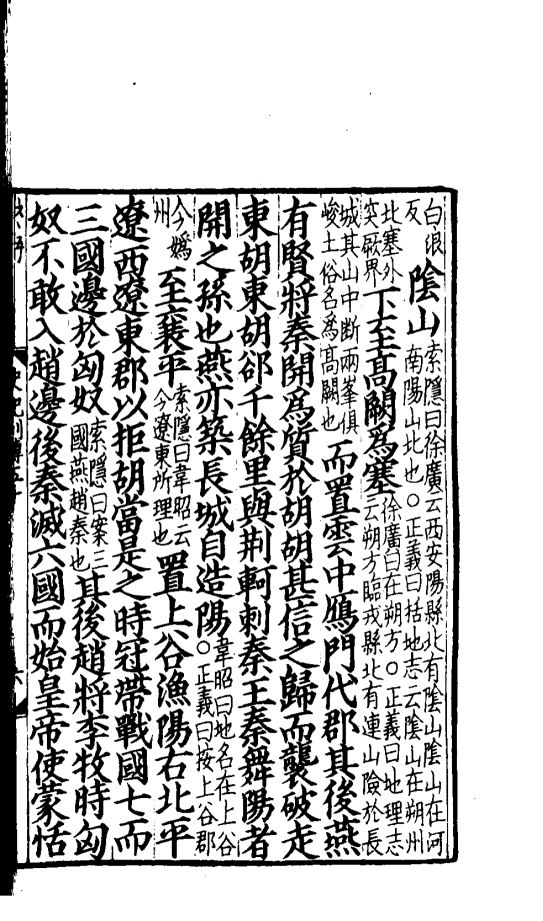 白浪反陰山索隱曰徐廣云西安陽縣北有陰山陰山在河南陽山北也○正義曰括地志云陰山在朔州
北塞外突厥界下至髙闕為塞徐廣曰在朔方○正義曰地理志云朔方臨戎縣北有連山險於長
城其山中斷兩峯俱峻土俗名為髙闕也而置雲中鴈門代郡其後燕
有賢將秦開為質於胡胡甚信之歸而襲破走
東胡東胡郤千餘里與荆軻刺秦王秦舞陽者
開之孫也燕亦築長城自造陽韋昭曰地名在上谷○正義曰按上谷郡
今媯州至襄平索隱曰韋昭云今遼東所理也置上谷漁陽右北平
遼西遼東郡以拒胡當是之時冠帶戰國七而
三國邊於匈奴索隱曰案三國燕趙秦也其後趙將李牧時匈
奴不敢入趙邊後秦滅六國而始皇帝使蒙恬